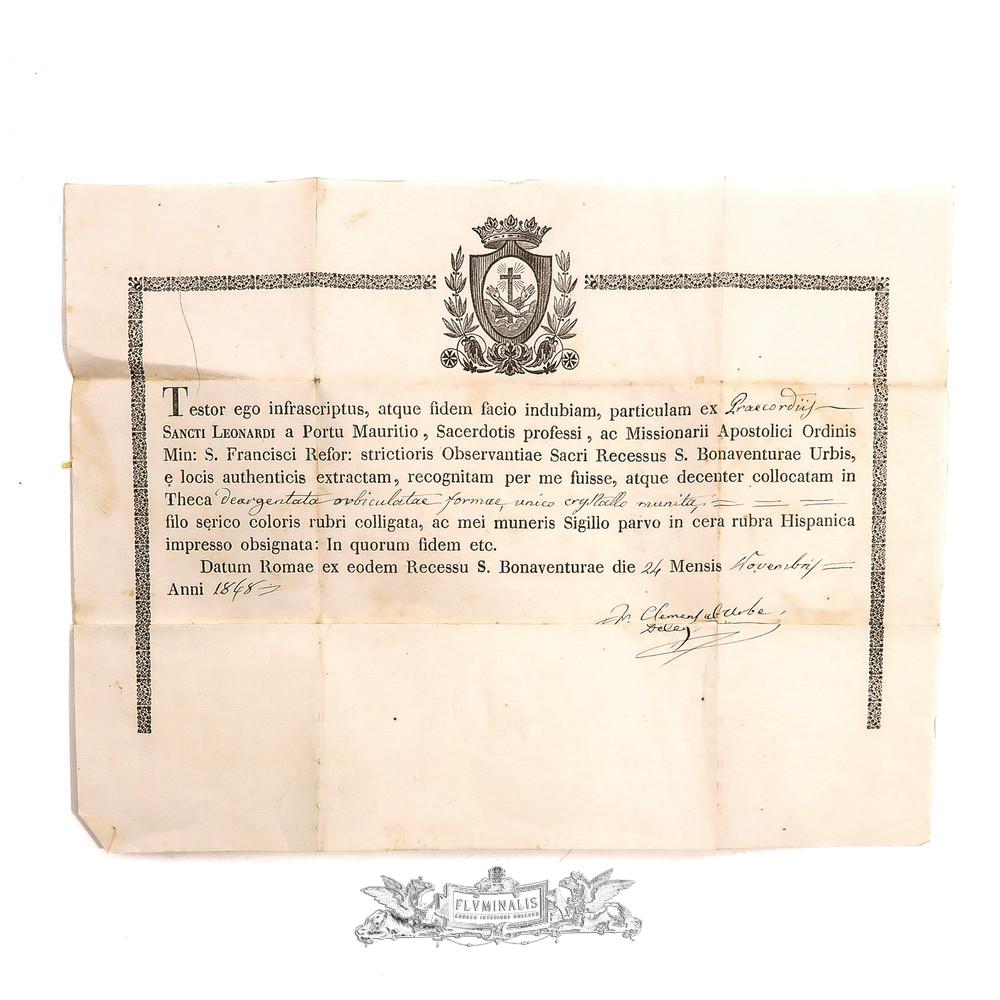 Testor ego infrascriptus, atque fidem facio indubiam, particulam ex Praecordijs
SANCTI LEONARDI a Portu Mauritio, Sacerdotis professi, ac Missionarii Apostolici Ordinis
Min: S. Francisci Refor: strictioris Observantiae Sacri Recessus S. Bonaventurae Urbis,
ę locis authenticis extractam, recognitam per me fuisse, atque decenter collocatam in
Theca deargentata orbiculatae formae, unico crystallo munita,
filo serico coloris rubri colligata, ac mei muneris Sigillo parvo in cera rubra Hispanica
impresso obsignata: In quorum fidem etc.
Datum Romae ex eodem Recessu S. Bonaventurae die 24 Mensis Novembris
Anni 1868
Fr. Clemens ab Urbe
FLVMINALIS
CHURCH INTERIORS HOLLAND